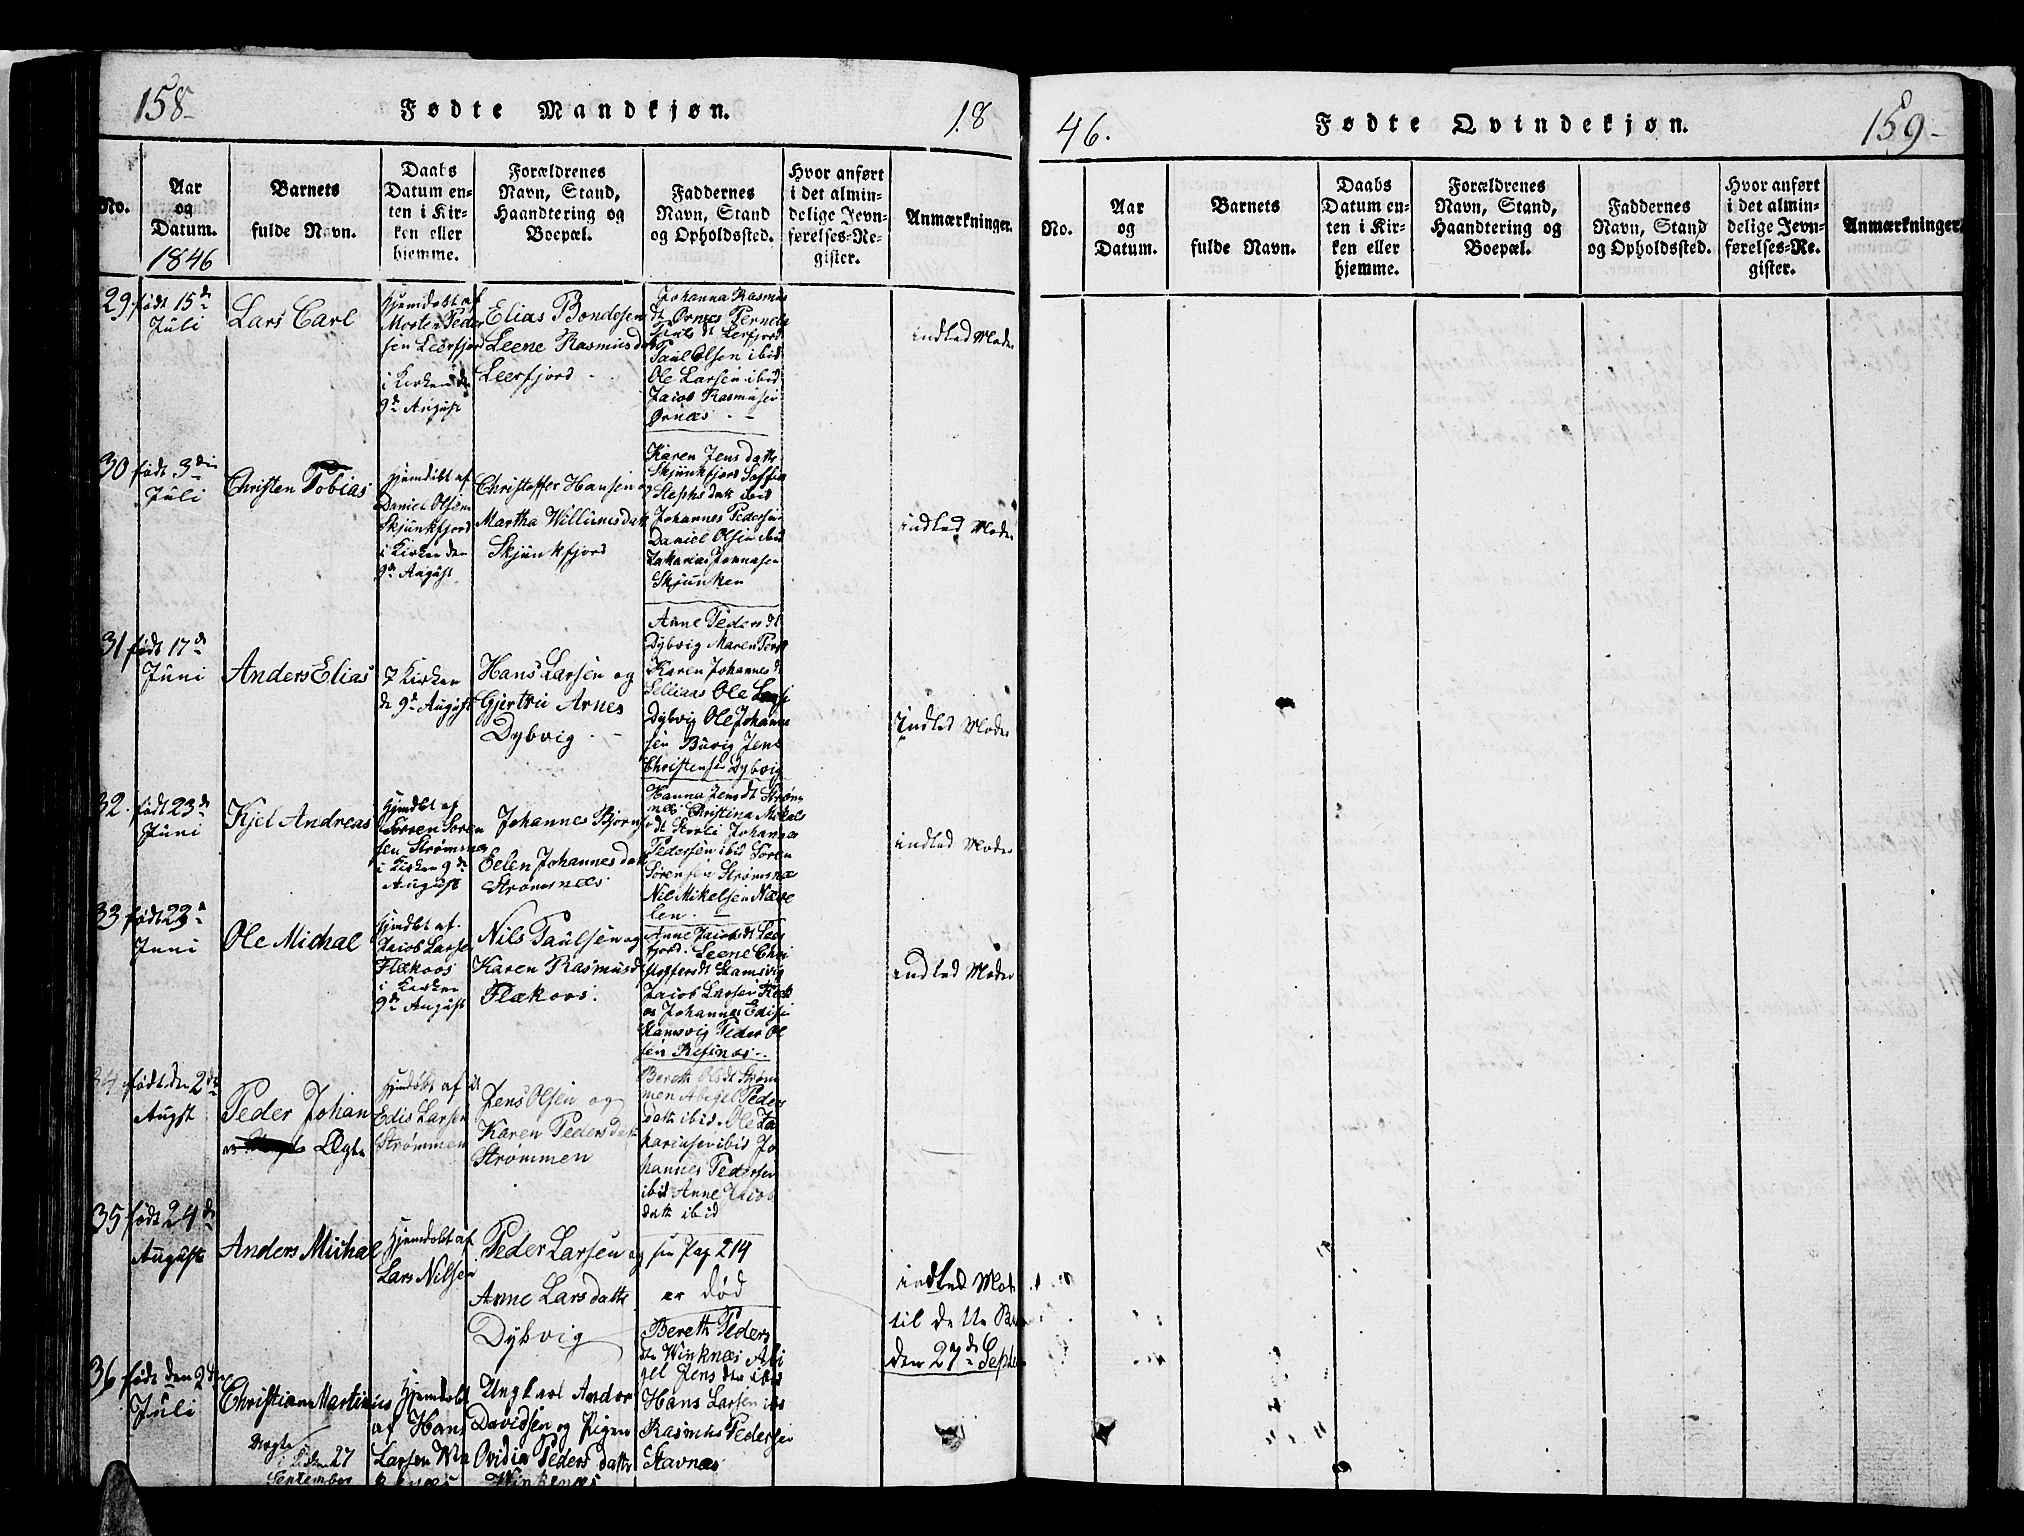 158
Fødte Mandkjøn.
18
No.
Aar
og
Datum.
1846
Barnets
fulde Navn.
Daabs
Datum en-
ten i Kir-
ken eller
hjemme.
Forældrenes
Navn, Stand,
Haandtering og
Boepæl.
Faddernes
Navn, Stand
og Opholdssted.
Hvor anført
i det almin-
delige Jevn-
førelses-Re-
gister.
Anmærkninger.
29
født 15de
Juli
Lars Carl
Hjemdøbt af
Morten Peder
sen Leerfjord
i Kirken den
9de August
Elias Bondesen
Leene Rasmusdatt
Leerfjord
Johanna Rasmus
dt Ørnes Pernele
dt Lerfjord
Paul Olsen ibid
Ole Larsen ibid
Jacob Rasmusen
Ørnæs
indled Moder
30
født 3die
Juli
Christen Tobias
Hjemdøbt af
Daniel Olsen
Skjunkfjord
i Kirken den
9de August
Christoffer Hansen og
Martha Willumsdatt
Skjunkfjord
Karen Jens datt
Skjunkfjord Soffia
Stephs datt ibid
Johannes Pedersen
Daniel Olsen ibid
Zakarias Jonnasen
Skjunken
indled Moder
31
født 17de
Juni
Anders Elias
I Kirken
de 9de August
Hans Larsen og
Gjertru Arnes
Dybvig
Anne Peders dt
Dybvig Maren Pers
Karen Johannes dt
Ole Larse
Dybvig Ole Johanne
sen Buvig Jens
Christensen Dybvig
Indled Moder
32
født 23de
Juni
Kjel Andreas
Hjemdøbt af
Sören Sören
sen Strømsnæs
i Kirken 9de
August
Johannes Bjørns
Eelen Johannes datt
Strømsnæs
Hanna Jens dt Strøms
næs Christina Mikels
dt Storli Johannes
Pedersen ibid Sören
Sörensen Strømsnæ
Nil Mikelsen Næve
len
indled Moder
33
født 23de
Juni
Ole Michal
Hjemdøbt af
Jacob Larsen
Flækoos
i Kirken
9de August
Nils Paulsen og
Karen Rasmusdt
Flækoos.
Anne Jacobs dt Leer
fjord. Leene Chri
stoffersdt Stamsvig
Jacob Larsen Flæk
os Johannes Edisen
Stamsvig Peder Ol
sen Refsnæs
indled Moder
34
født den 2den
Augst
Peder Johan
es Ægte
Hjemdøbt af
Edis Larsen
Strømmen
Jens Olsen og
Karen Peders datt
Strømmen
Bereth Olsdt Strøm
men Abigel Peders
datt ibid. Ole Za
kariasen ibid Jo
hannes Pedersen
ibid Anne Jacob
datt ibid
35
født 24de
August
Anders Michal
Hjemdøbt af
Lars Nilsen
Peder Larsen og
Anne Lars datt
Dybvig
see Pag 214
er død
indled Mod
til dette Ba
den 27de Septe
36
født den 2den
Juli
Christian Martinus
Uægte
i Kirken 27
September
Hjemdøbt
af Hans
Larsen Win
kenæs
Ungkarl Andor
Davidsen og Pigen
Ovidia Peders datt
Winkenæs
Bereth Peders
dt Winknæs Abi
gel Jens dtr ibid
Hans Larsen ibid
Rasmus Pedersen
Stavnæs
46.
Fødte Qvindekjøn.
159
No.
Aar
og
Datum.
Barnets
fulde Navn.
Daabs
Datum en-
ten i Kir-
ken eller
hjemme.
Forældrenes
Navn, Stand,
Haandtering og
Boepæl.
Faddernes
Navn, Stand
og Opholdssted.
Hvor anført
i det almin-
delige Jevn-
førelses-Re-
gister.
Anmærkninger.